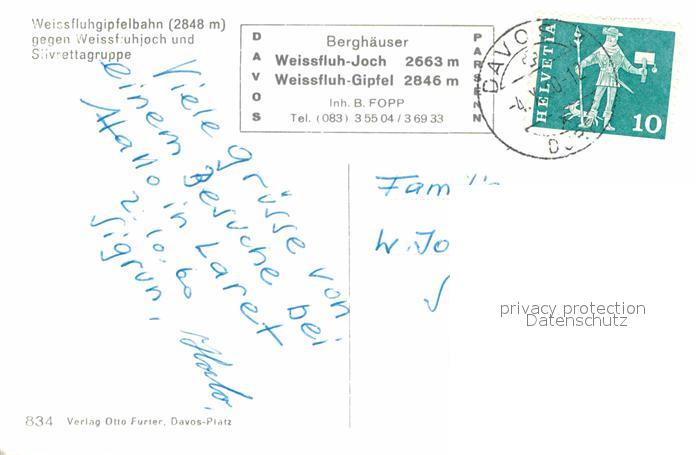 Weissfluhgipfelbahn (2848 m)
gegen Weissfluhjoch und
Silvrettagruppe
DAVOS
Berghäuser
Weissfluh-Joch 2663 m
Weissfluh-Gipfel 2846 m
Inh. B. FOPP
Tel. (083) 3 55 04 / 3 69 33
PARSENN
DAVOS
HELVETIA
10
Viele grüsse von
einem Besuche bei
Hallo in Laret
Sigrun.
Hallo.
Famili
W. Jo
privacy protection
Datenschutz
834 Verlag Otto Furter, Davos-Platz